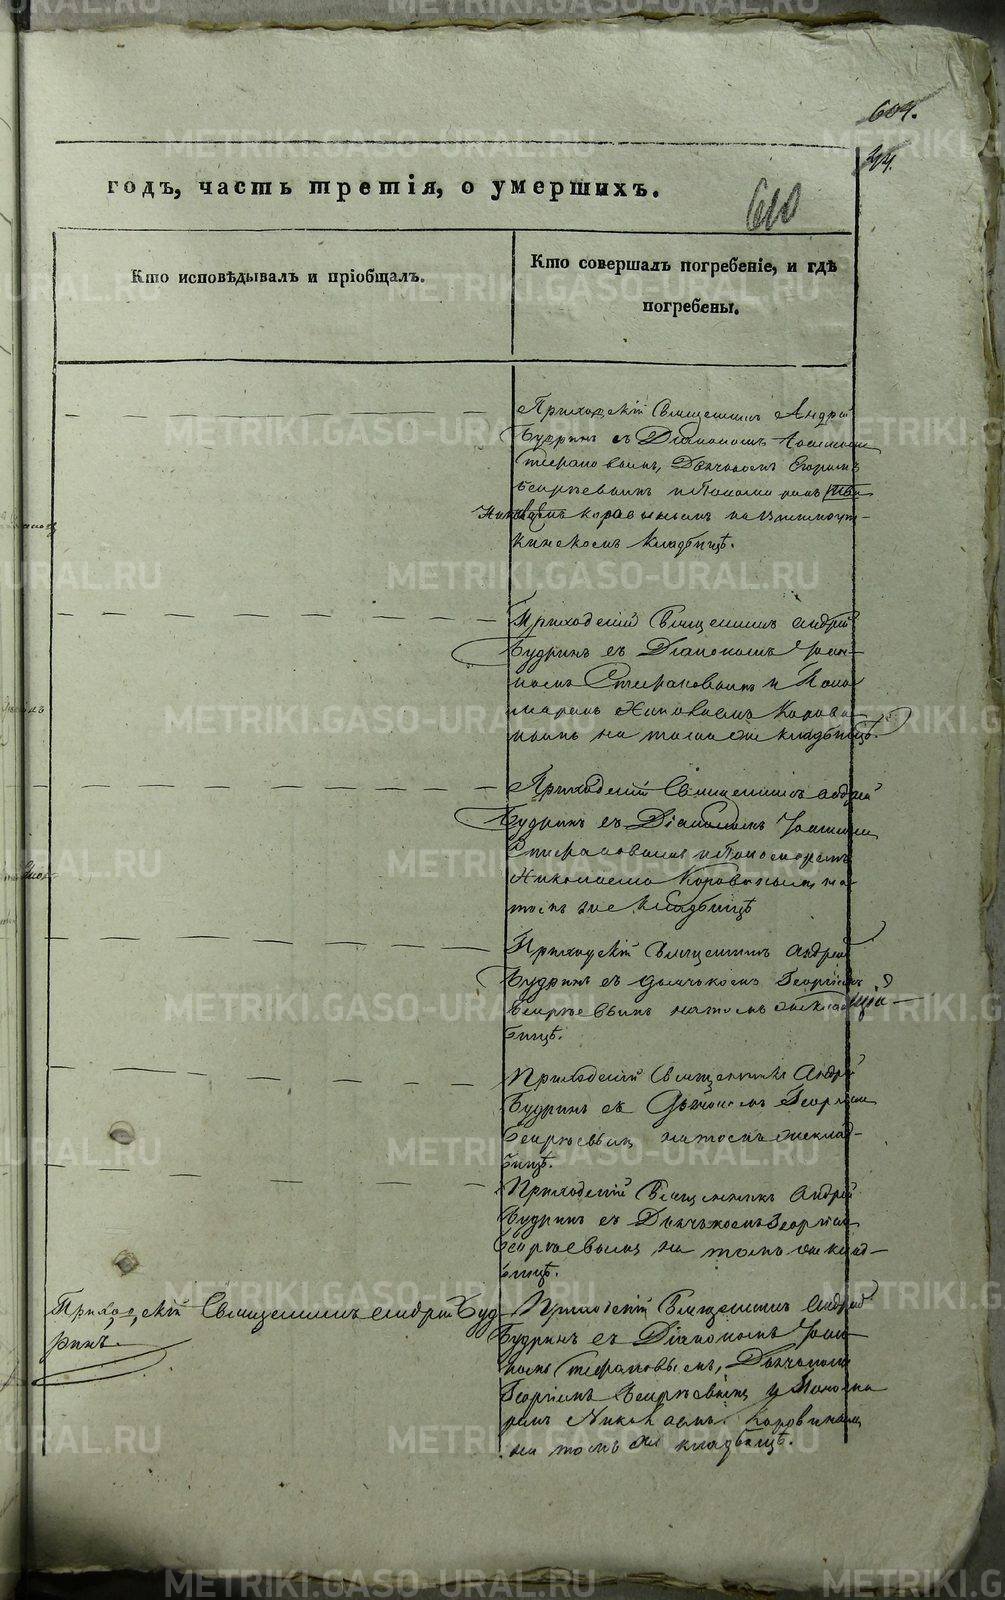 604.
44.
годъ, часть третія, о умершихъ.
610
Кто исповѣдывалъ и пріобщалъ.
Кто совершалъ погребеніе, и гдѣ
погребены.
Приходскій Священникъ Андрей
Будринъ съ Діакономъ
Стефановымъ, Дьячкомъ Егоромъ
и Пономаремъ
Николаемъ Коровинымъ на
кладбищѣ.
Приходскій Священникъ Андрей
Будринъ съ Діакономъ Іоан-
номъ Стефановымъ и Поно-
маремъ Николаемъ Корови-
нымъ на томъ же кладбищѣ.
Приходскій Священникъ Андрей
Будринъ съ Діакономъ Іоанномъ
Стефановымъ и Пономаремъ
Николаемъ Коровинымъ на
томъ же кладбищѣ
Приходскій Священникъ Андрей
Будринъ съ дьячкомъ Георгіемъ
на томъ же клад-
бищѣ.
Приходскій Священникъ Андрей
Будринъ съ Дьячкомъ Георгіемъ
на томъ же клад-
бищѣ.
Приходскій Священникъ Андрей
Будринъ съ Дьячкомъ Георгіемъ
на томъ же клад-
бищѣ.
Приходскій Священникъ Андрей Буд-
ринъ.
Приходскій Священникъ Андрей
Будринъ съ Діакономъ Іоан-
номъ Стефановымъ, Дьячкомъ
Георгіемъ и Понома-
ремъ Николаемъ Коровинымъ
на томъ же кладбищѣ.
METRIKI.GASO-URAL.RU